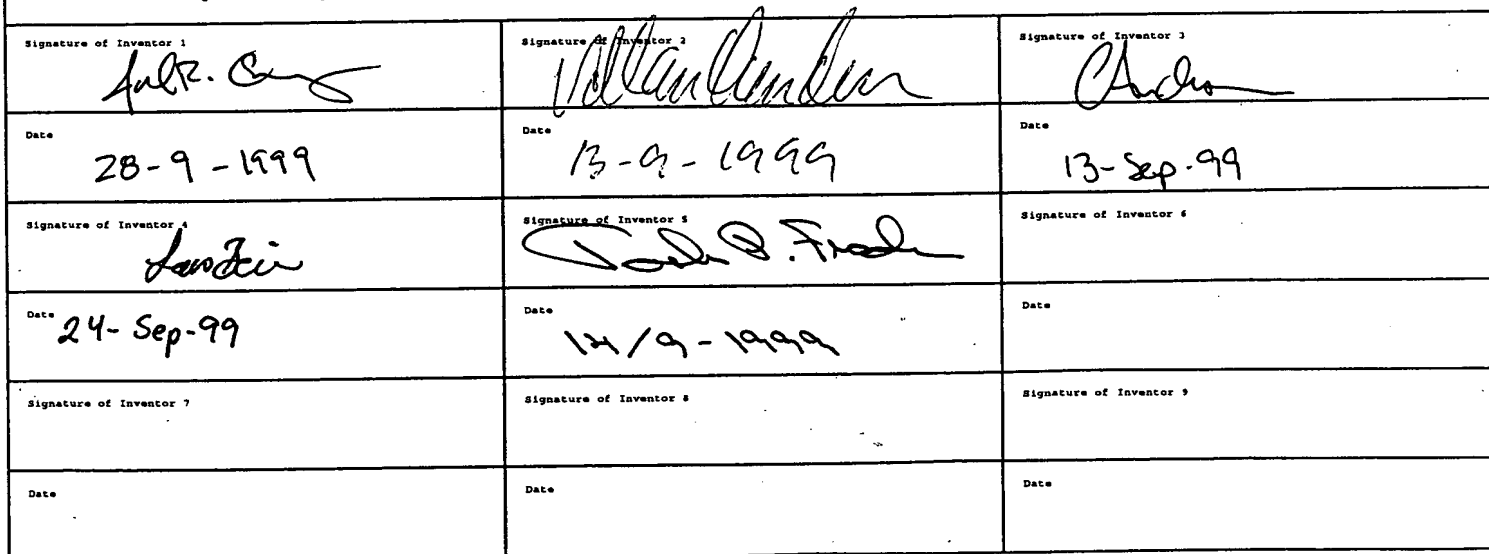 Signature of Inventor 1
Signature of Inventor 2
Signature of Inventor 3
Date
28-9-1999
Date
13-9-1999
Date
13-Sep-99
Signature of Inventor 4
Signature of Inventor 5
Signature of Inventor 6
Date
24-Sep-99
Date
14/9-1999
Date
Signature of Inventor 7
Signature of Inventor 8
Signature of Inventor 9
Date
Date
Date